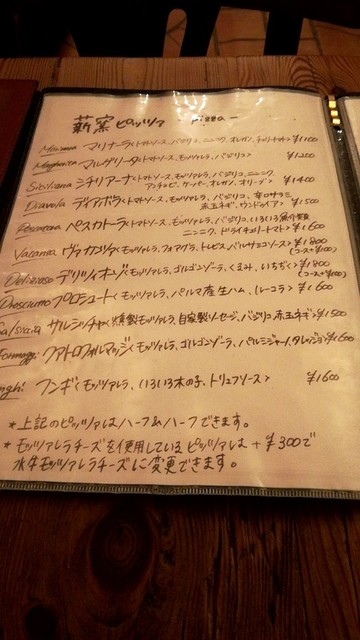 薪窯 ピッツァ pizza
マリナーラ<トマトソース、バジリコ、ニンニク、オレガノ、チェリートマト> ¥1100
Margherita マルゲリータ<トマトソース、モッツァレラ、バジリコ> ¥1200
Siciliana シチリアーナ<トマトソース、モッツァレラ、バジリコ、ニンニク、
アンチョビ、ケッパー、オレガノ、オリーブ> ¥1400
Diavola ディアボラ<トマトソース、モッツァレラ、バジリコ、辛口サラミ
赤玉ネギ、ウンドゥイア> ¥1500
Pescatora ペスカトーラ<トマトソース、モッツァレラ、バジリコ、いろいろ魚介類
ニンニク、ドライチェリートマト> ¥1600
Vacanza ヴァカンツァ<モッツァレラ、フォアグラ、トレビス、バルサミコソース> ¥1800
(コース+¥00)
Delizioso デリツィオーゾ<モッツァレラ、ゴルゴンゾーラ、くるみ、いちぢく> ¥1800
(コース+¥00)
Prosciutto プロシュート<モッツァレラ、パルマ産生ハム、ルーコラ> ¥1600
Salsiccia サルシッチャ<燻製モッツァレラ、自家製ソーセージ、バジリコ、赤玉ネギ> ¥1500
Formaggi クァトロフォルマッジ<モッツァレラ、ゴルゴンゾーラ、パルミジャーノ、タレッジョ> ¥1600
nghi フンギ<モッツァレラ、いろいろ木の子、トリュフソース> ¥1600
*上記のピッツァはハーフ&ハーフできます。
*モッツァレラチーズを使用しているピッツァは+¥300で
水牛モッツァレラチーズに変更できます。